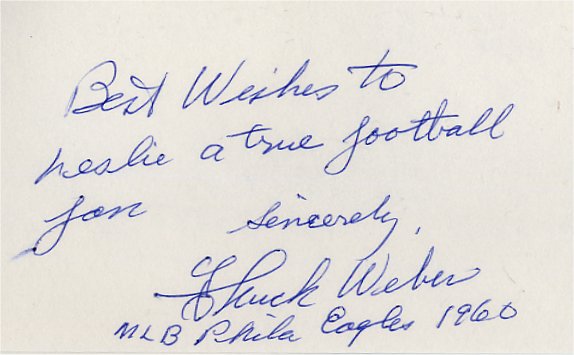 Best Wishes to
Leslie a true football
fan Sincerely,
Chuck Weber
MLB Phila Eagles 1960